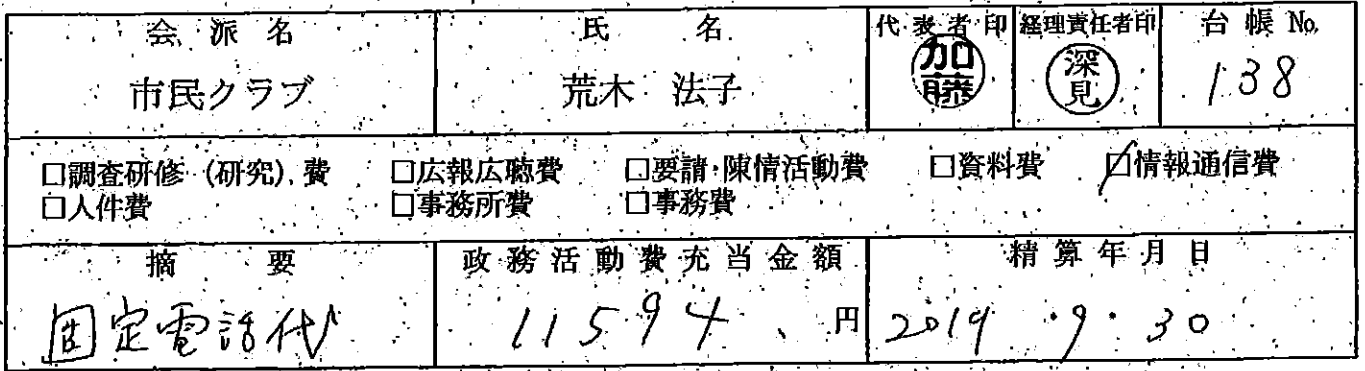 会派名 氏名 代表者印 経理責任者印 台帳No.
市民クラブ 荒木 法子 加藤 深見 138
□調査研修(研究)費 □広報広聴費 □要請・陳情活動費 □資料費 ☑情報通信費
□人件費 □事務所費 □事務費
摘要 政務活動費充当金額 精算年月日
固定電話代 11594円 2019.9.30